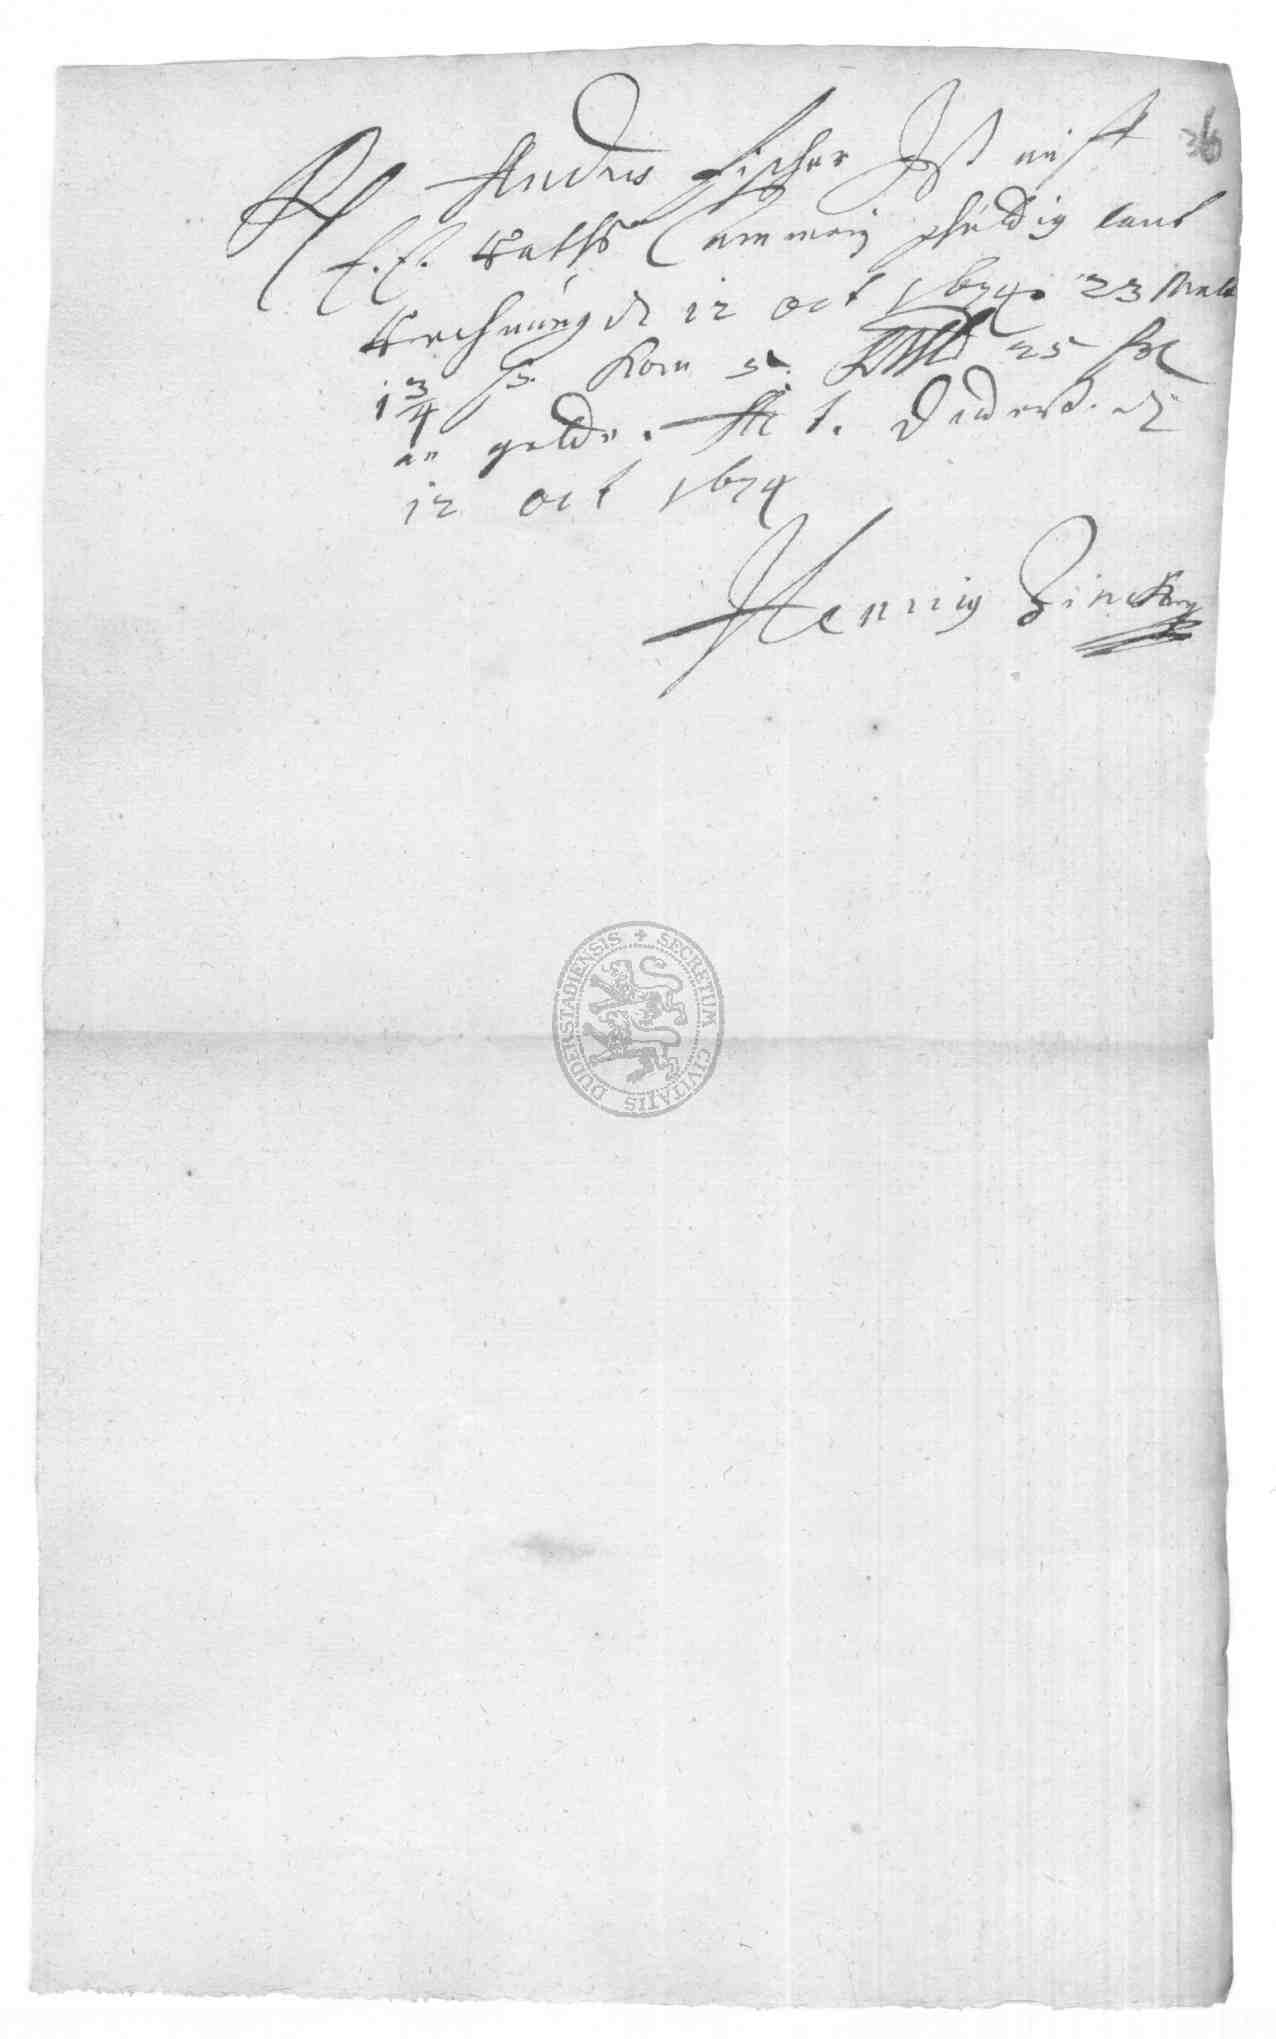 36
Andres Fischer Ist auff
E. E. Raths Cammerey schuldig laut
Rechnung d 12 oct 1674. 23 Malt
1 3/4 Korn 25
an gelde. Duderst. d
12 oct 1674
Hennig Zincke
SECRETUM CIVITATIS DUDERSTADIENSIS